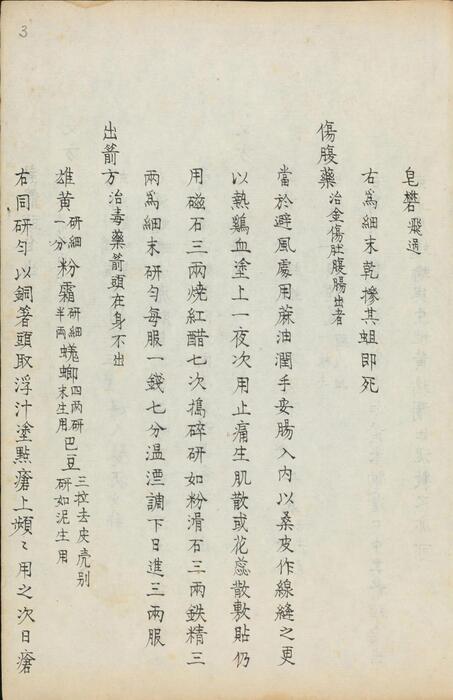 3
皂礬飛過
右爲細末乾摻其蛆即死
傷腹藥治金傷肚腹腸出者
當於避風處用蔴油潤手安腸入內以桑皮作線縫之更
以熱鷄血塗上一夜次用止痛生肌散或花蕊散敷貼仍
用磁石三兩燒紅醋七次搗碎研如粉滑石三兩鉄精三
兩爲細末研勻每服一錢七分温漂調下日進三兩服
出箭方治毒藥箭頭在身不出
雄黄研細一分粉霜研細半両蜣螂四両研末生用巴豆三粒去皮壳别研如泥生用
右同研勻以銅箸頭取浮汁塗點瘡上頻〻用之次日瘡